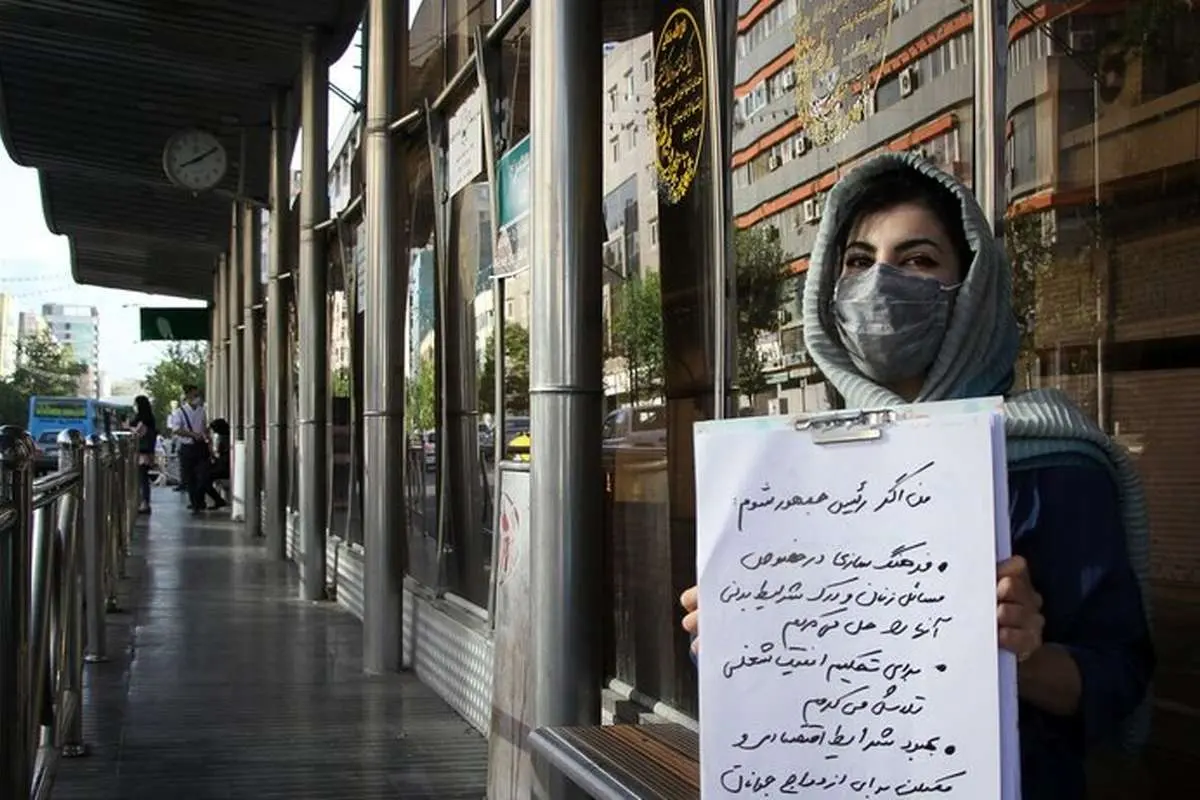 من اگر رئیس جمهور شوم:
• فرهنگ سازی در خصوص
مسائل زنان و درک شرایط بدنی
آنها را حل می کردم
• برای تحکیم امنیت شغلی
تلاش می کردم
• بهبود شرایط اقتصادی و
مسکن برای ازدواج جوانان